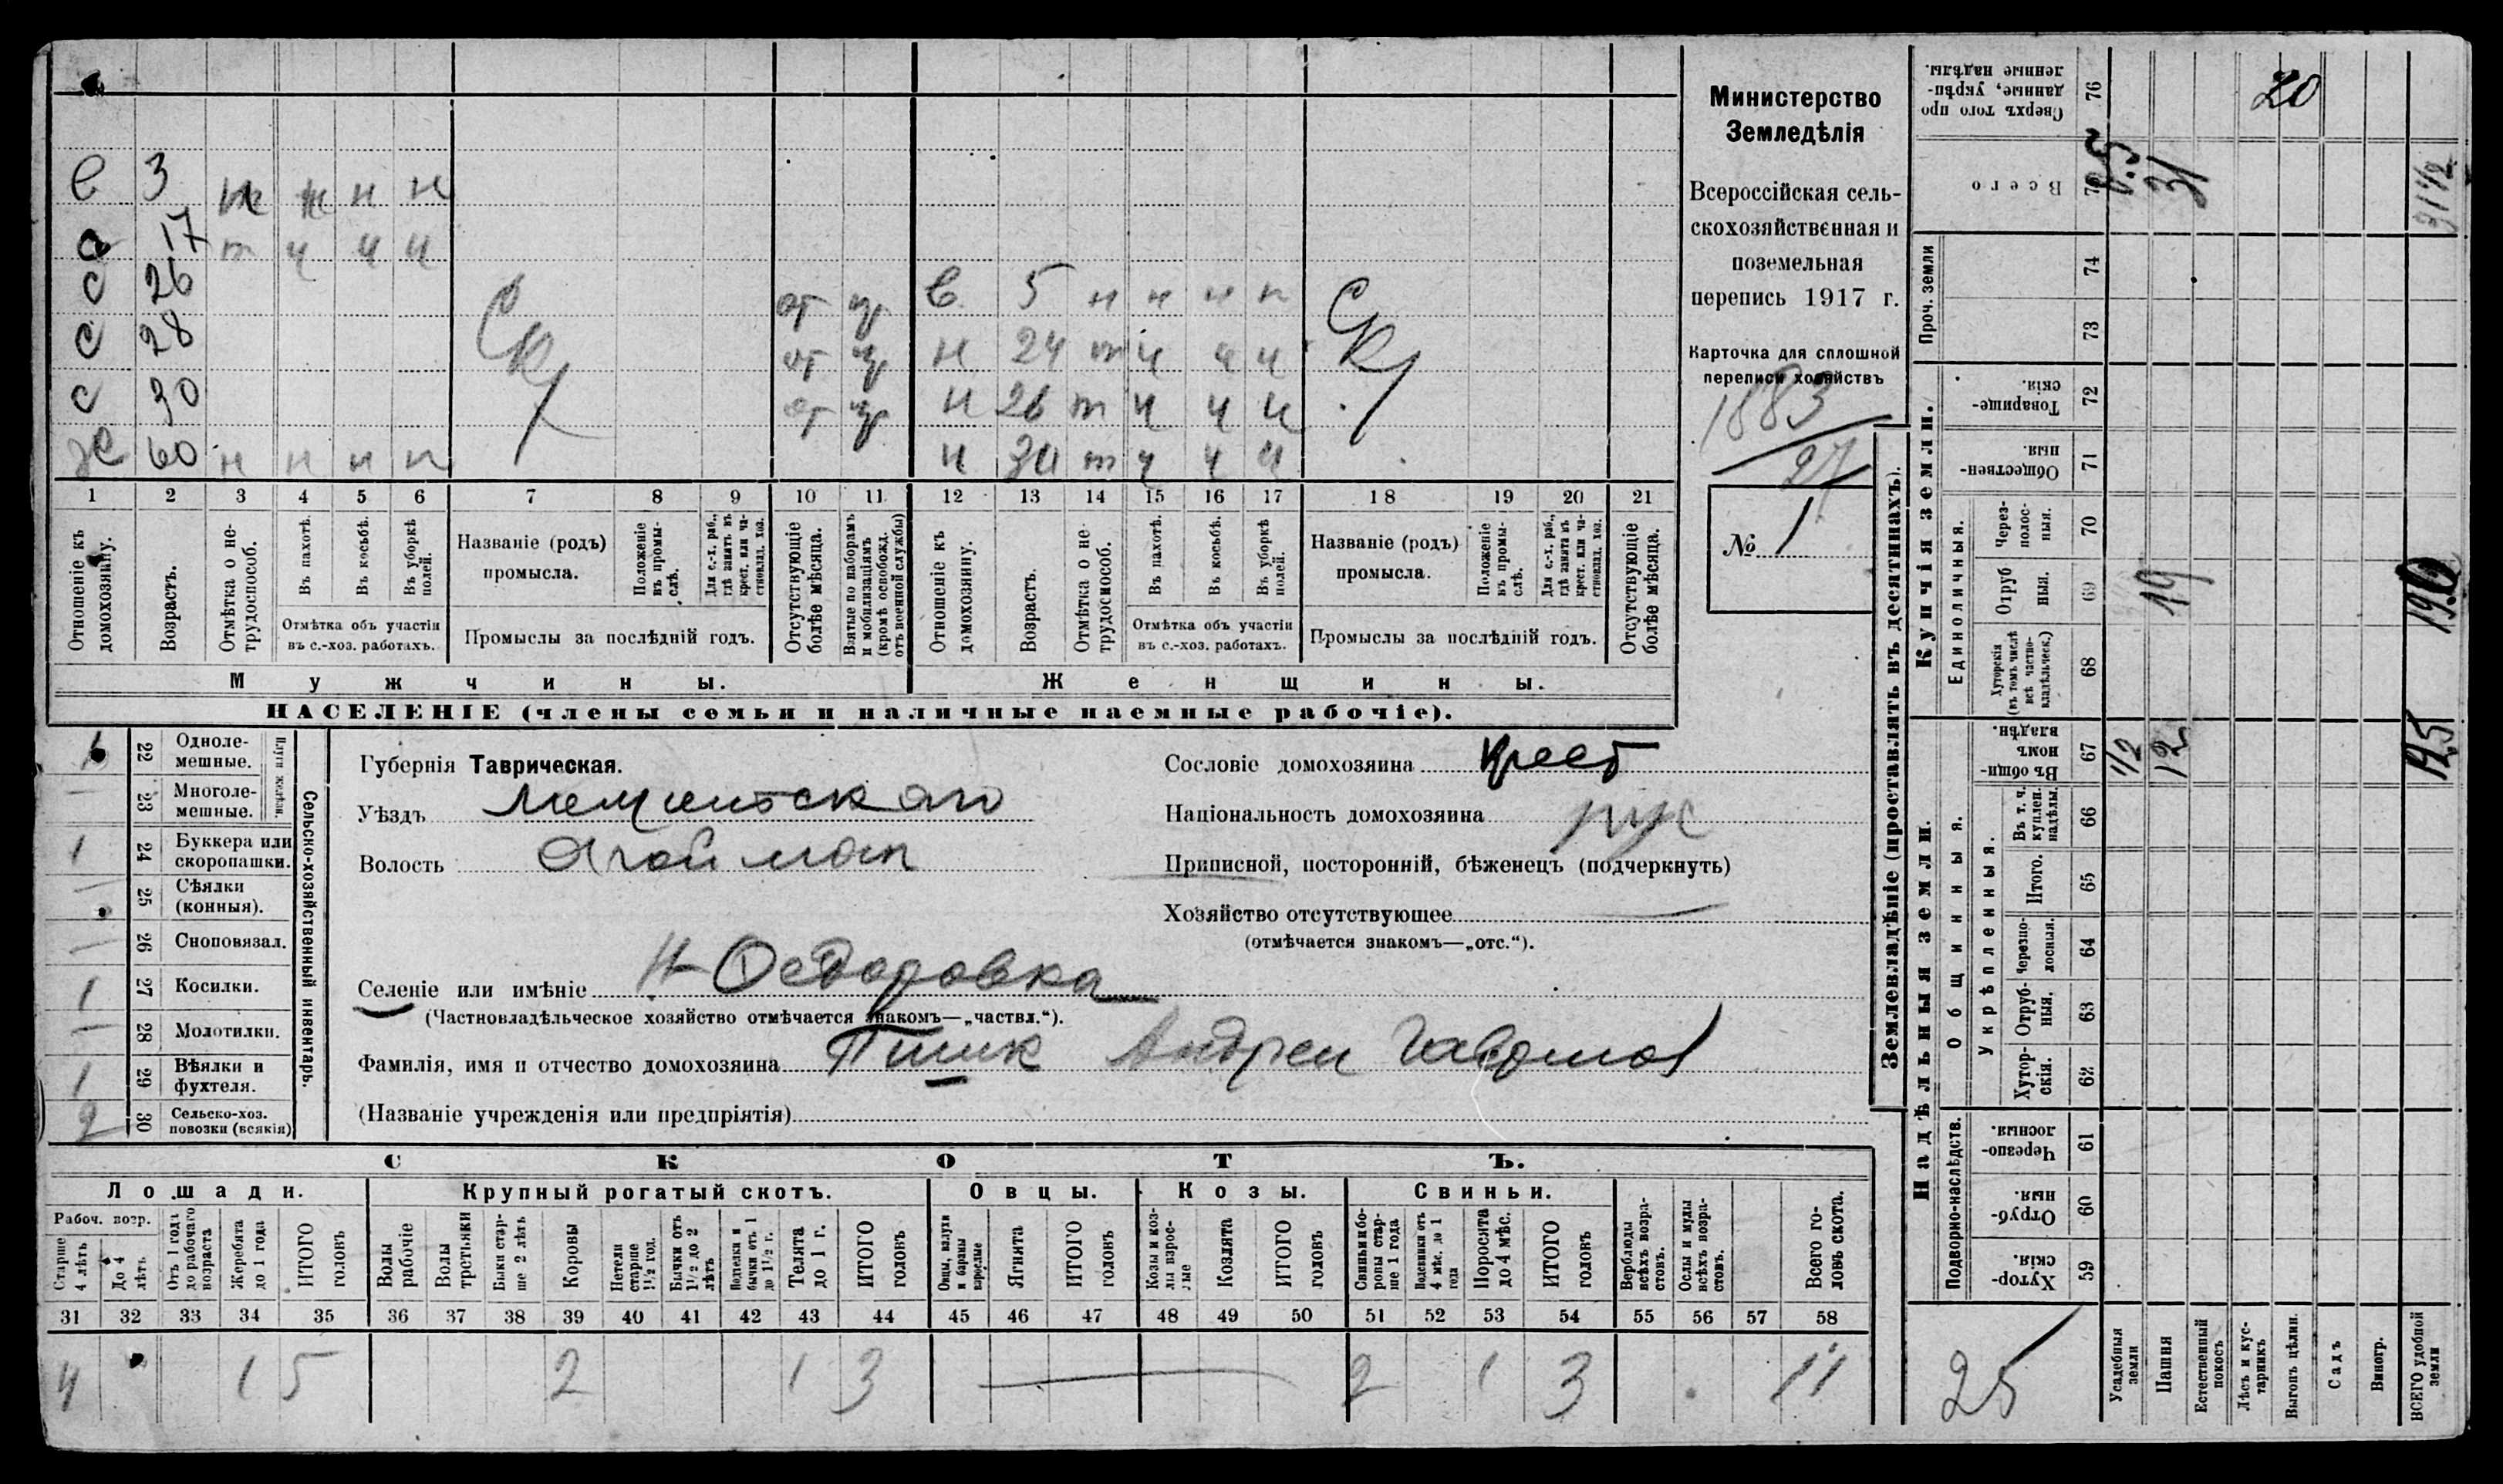 в 3 н н н н
17 т ч ч ч
с 26 от пр в 5 н н н н
с 28 от пр н 24 т ч ч ч
с 30 от пр н 26 т ч ч ч
60 н н н н н 30 т ч ч ч
1 2 3 4 5 6 7 8 9 10 11 12 13 14 15 16 17 18 19 20 21
Отношеніе къ домохозяину.
Возрастъ.
Отмѣтка о не-трудоспособ.
Въ пахотѣ.
Въ косьбѣ.
Въ уборкѣ полей.
Отмѣтка объ участіи въ с.-хоз. работахъ.
Названіе (родъ) промысла.
Положеніе въ промы-слѣ.
Для с.-х. раб., гдѣ занятъ въ крест. или ча-стновлад. хоз.
Промыслы за послѣдній годъ.
Отсутствующіе болѣе мѣсяца.
Взятые по наборамъ и мобилизаціямъ (кромѣ освобожд. отъ военной службы)
Отношеніе къ домохозяину.
Возрастъ.
Отмѣтка о не-трудоспособ.
Въ пахотѣ.
Въ косьбѣ.
Въ уборкѣ полей.
Отмѣтка объ участіи въ с.-хоз. работахъ.
Названіе (родъ) промысла.
Положеніе въ промы-слѣ.
Для с.-х. раб., гдѣ занята въ крест. или ча-стновлад. хоз.
Промыслы за послѣдній годъ.
Отсутствующіе болѣе мѣсяца.
Мужчины.
Женщины.
НАСЕЛЕНІЕ (члены семьи и наличные наемные рабочіе).
Министерство
Земледѣлія
Всероссійская сель-
скохозяйственная и
поземельная
перепись 1917 г.
Карточка для сплошной
переписи хозяйствъ
1883
27
№ 1
1 22 Одноле-мешные.
— 23 Многоле-мешные.
Плуги желѣзн.
1 24 Буккера или скоропашки.
— 25 Сѣялки (конныя).
— 26 Сноповязал.
1 27 Косилки.
— 28 Молотилки.
1 29 Вѣялки и фухтеля.
2 30 Сельско-хоз. повозки (всякія)
Сельско-хозяйственный инвентарь.
Губернія Таврическая.
Уѣздъ
Волость Агайман
Селеніе или имѣніе Н-Федоровка
(Частновладѣльческое хозяйство отмѣчается знакомъ—„частвл.“).
Фамилія, имя и отчество домохозяина Пшик Андрей Гаврилов
(Названіе учрежденія или предпріятія)
Сословіе домохозяина крест
Національность домохозяина рус
Приписной, посторонній, бѣженецъ (подчеркнуть)
Хозяйство отсутствующее —
(отмѣчается знакомъ—„отс.“).
СКОТЪ.
Лошади.
Крупный рогатый скотъ.
Овцы.
Козы.
Свиньи.
Рабоч. возр.
Старше 4 лѣтъ
До 4 лѣтъ
Отъ 1 года до рабочаго возраста
Жеребята до 1 года
ИТОГО головъ
Волы рабочіе
Волы третьяки
Быки стар-ше 2 лѣтъ
Коровы
Нетели старше 1½ год.
Бычки отъ 1½ до 2 лѣтъ
Телята до 1 г.
ИТОГО головъ
Овцы, валухи и бараны взрослые
Ягнята
ИТОГО головъ
Козы и коз-лы взрос-лые
Козлята
ИТОГО головъ
Свиньи и бо-ровы стар-ше 1 года
Подсвинки отъ 4 мѣс. до 1 года
Поросята до 4 мѣс.
ИТОГО головъ
Верблюды всѣхъ возра-стовъ.
Ослы и мулы всѣхъ возра-стовъ.
Всего го-ловъ скота.
31 32 33 34 35 36 37 38 39 40 41 42 43 44 45 46 47 48 49 50 51 52 53 54 55 56 57 58
4 1 5 2 1 3 — 2 1 3 11
Землевладѣніе (проставлять въ десятинахъ).
Купчія земли.
Надѣльныя земли.
Сверхъ того про-данные, укрѣп-ленные надѣлы. 76 20
Всего 75 31 31½
Проч. земли 74
73
Товарище-скія. 72
Обществен-ныя. 71
Единоличныя.
Через-полос-ныя. 70
Отруб-ныя. 69 19 19.0
Хуторскія (въ томъ числѣ всѣ частно-владѣльческ.) 68
Общинныя.
Въ общи-номъ владѣн. 67 ½ 12 12.5
Укрѣпленныя.
Въ т. ч. куплен. надѣлы. 66
Итого. 65
Черезпо-лосныя. 64
Отруб-ныя. 63
Хутор-скія. 62
Подворно-наслѣдств.
Черезпо-лосныя. 61
Отруб-ныя. 60
Хутор-скія. 59
25
Усадебныя земли
Пашня
Естественный покосъ
Лѣсъ и кус-тарникъ
Выгонъ цѣлин.
Садъ
Виногр.
ВСЕГО удобной земли